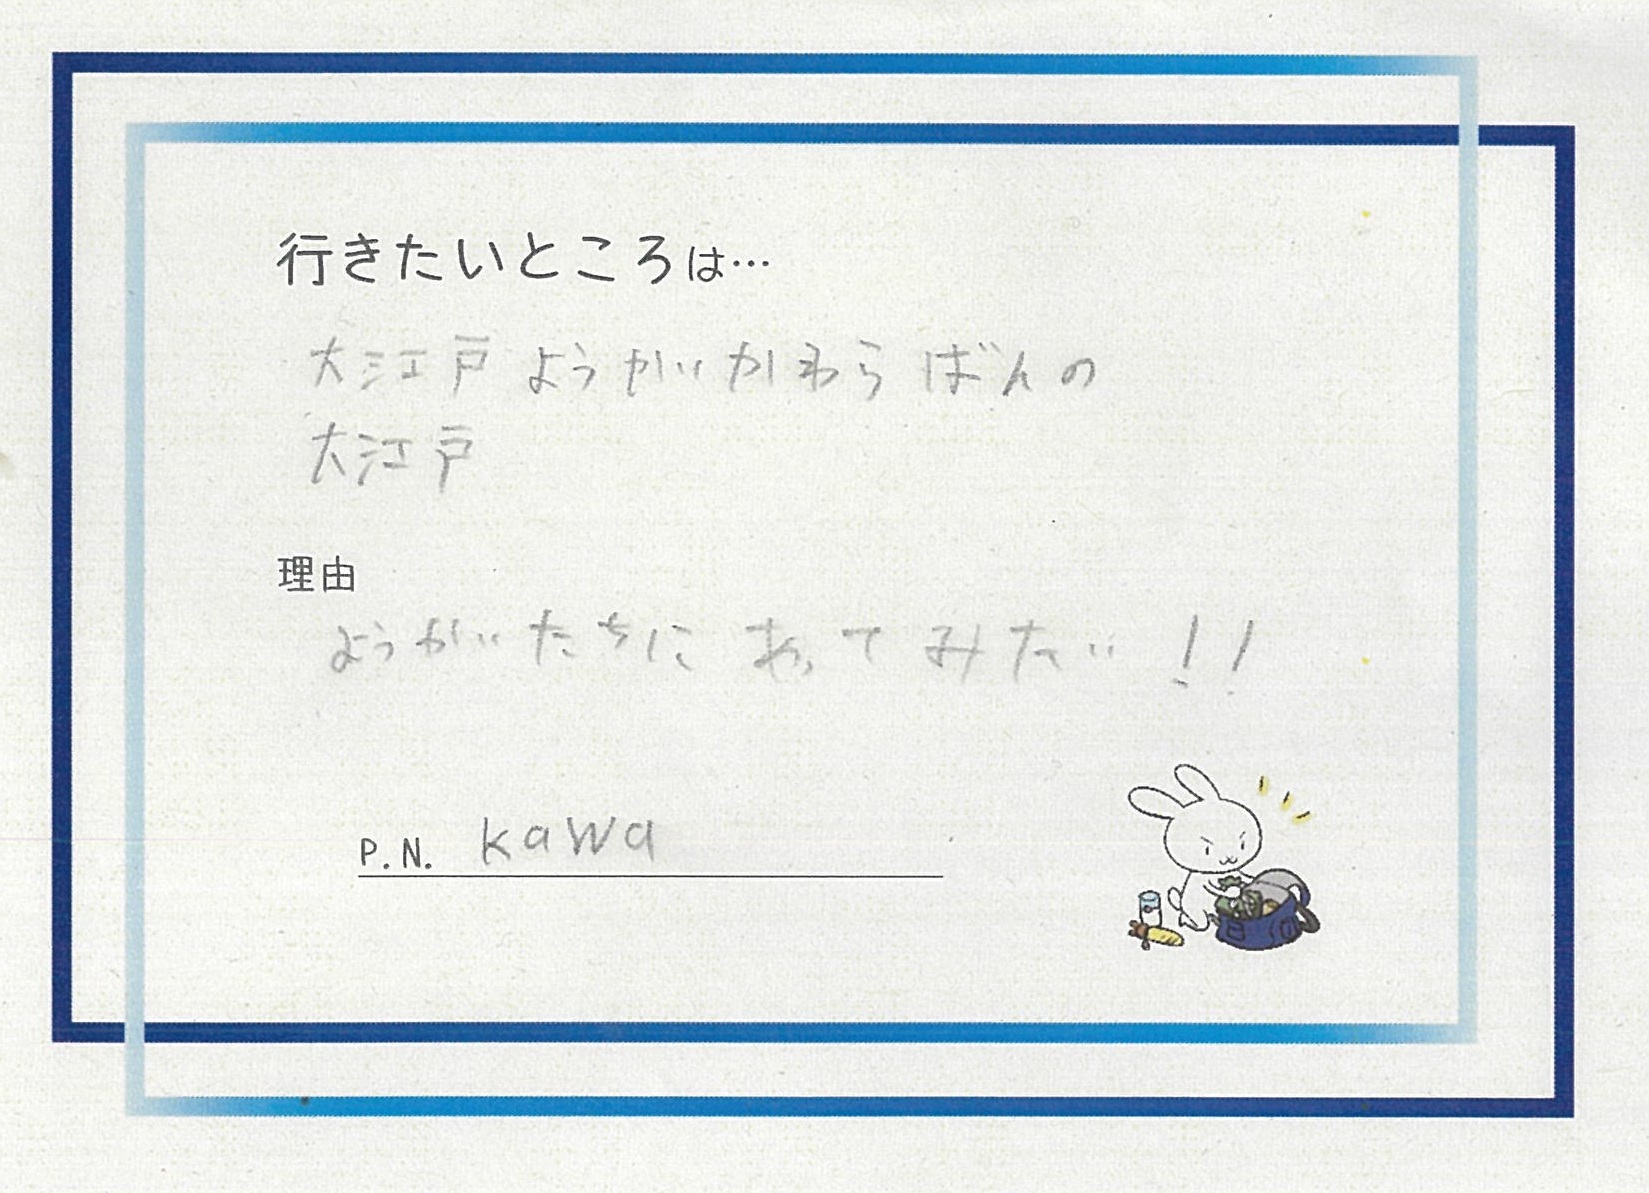 行きたいところは…
大江戸ようかいかわらばんの
大江戸
理由
ようかいたちにあってみたい!!
P.N. kawa